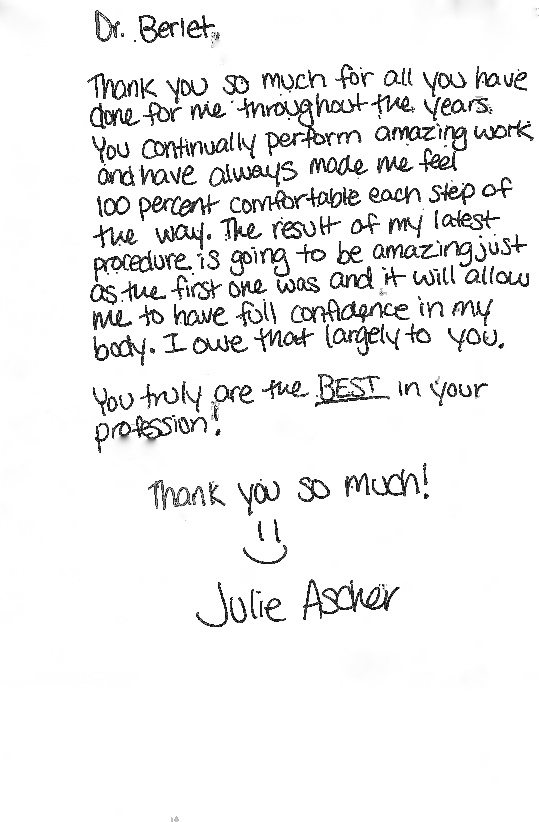 Dr. Berlet,
Thank you so much for all you have
done for me throughout the years.
You continually perform amazing work
and have always made me feel
100 percent comfortable each step of
the way. The result of my latest
procedure is going to be amazing just
as the first one was and it will allow
me to have full confidence in my
body. I owe that largely to you.
You truly are the BEST in your
profession!
Thank you so much!
Julie Ascher